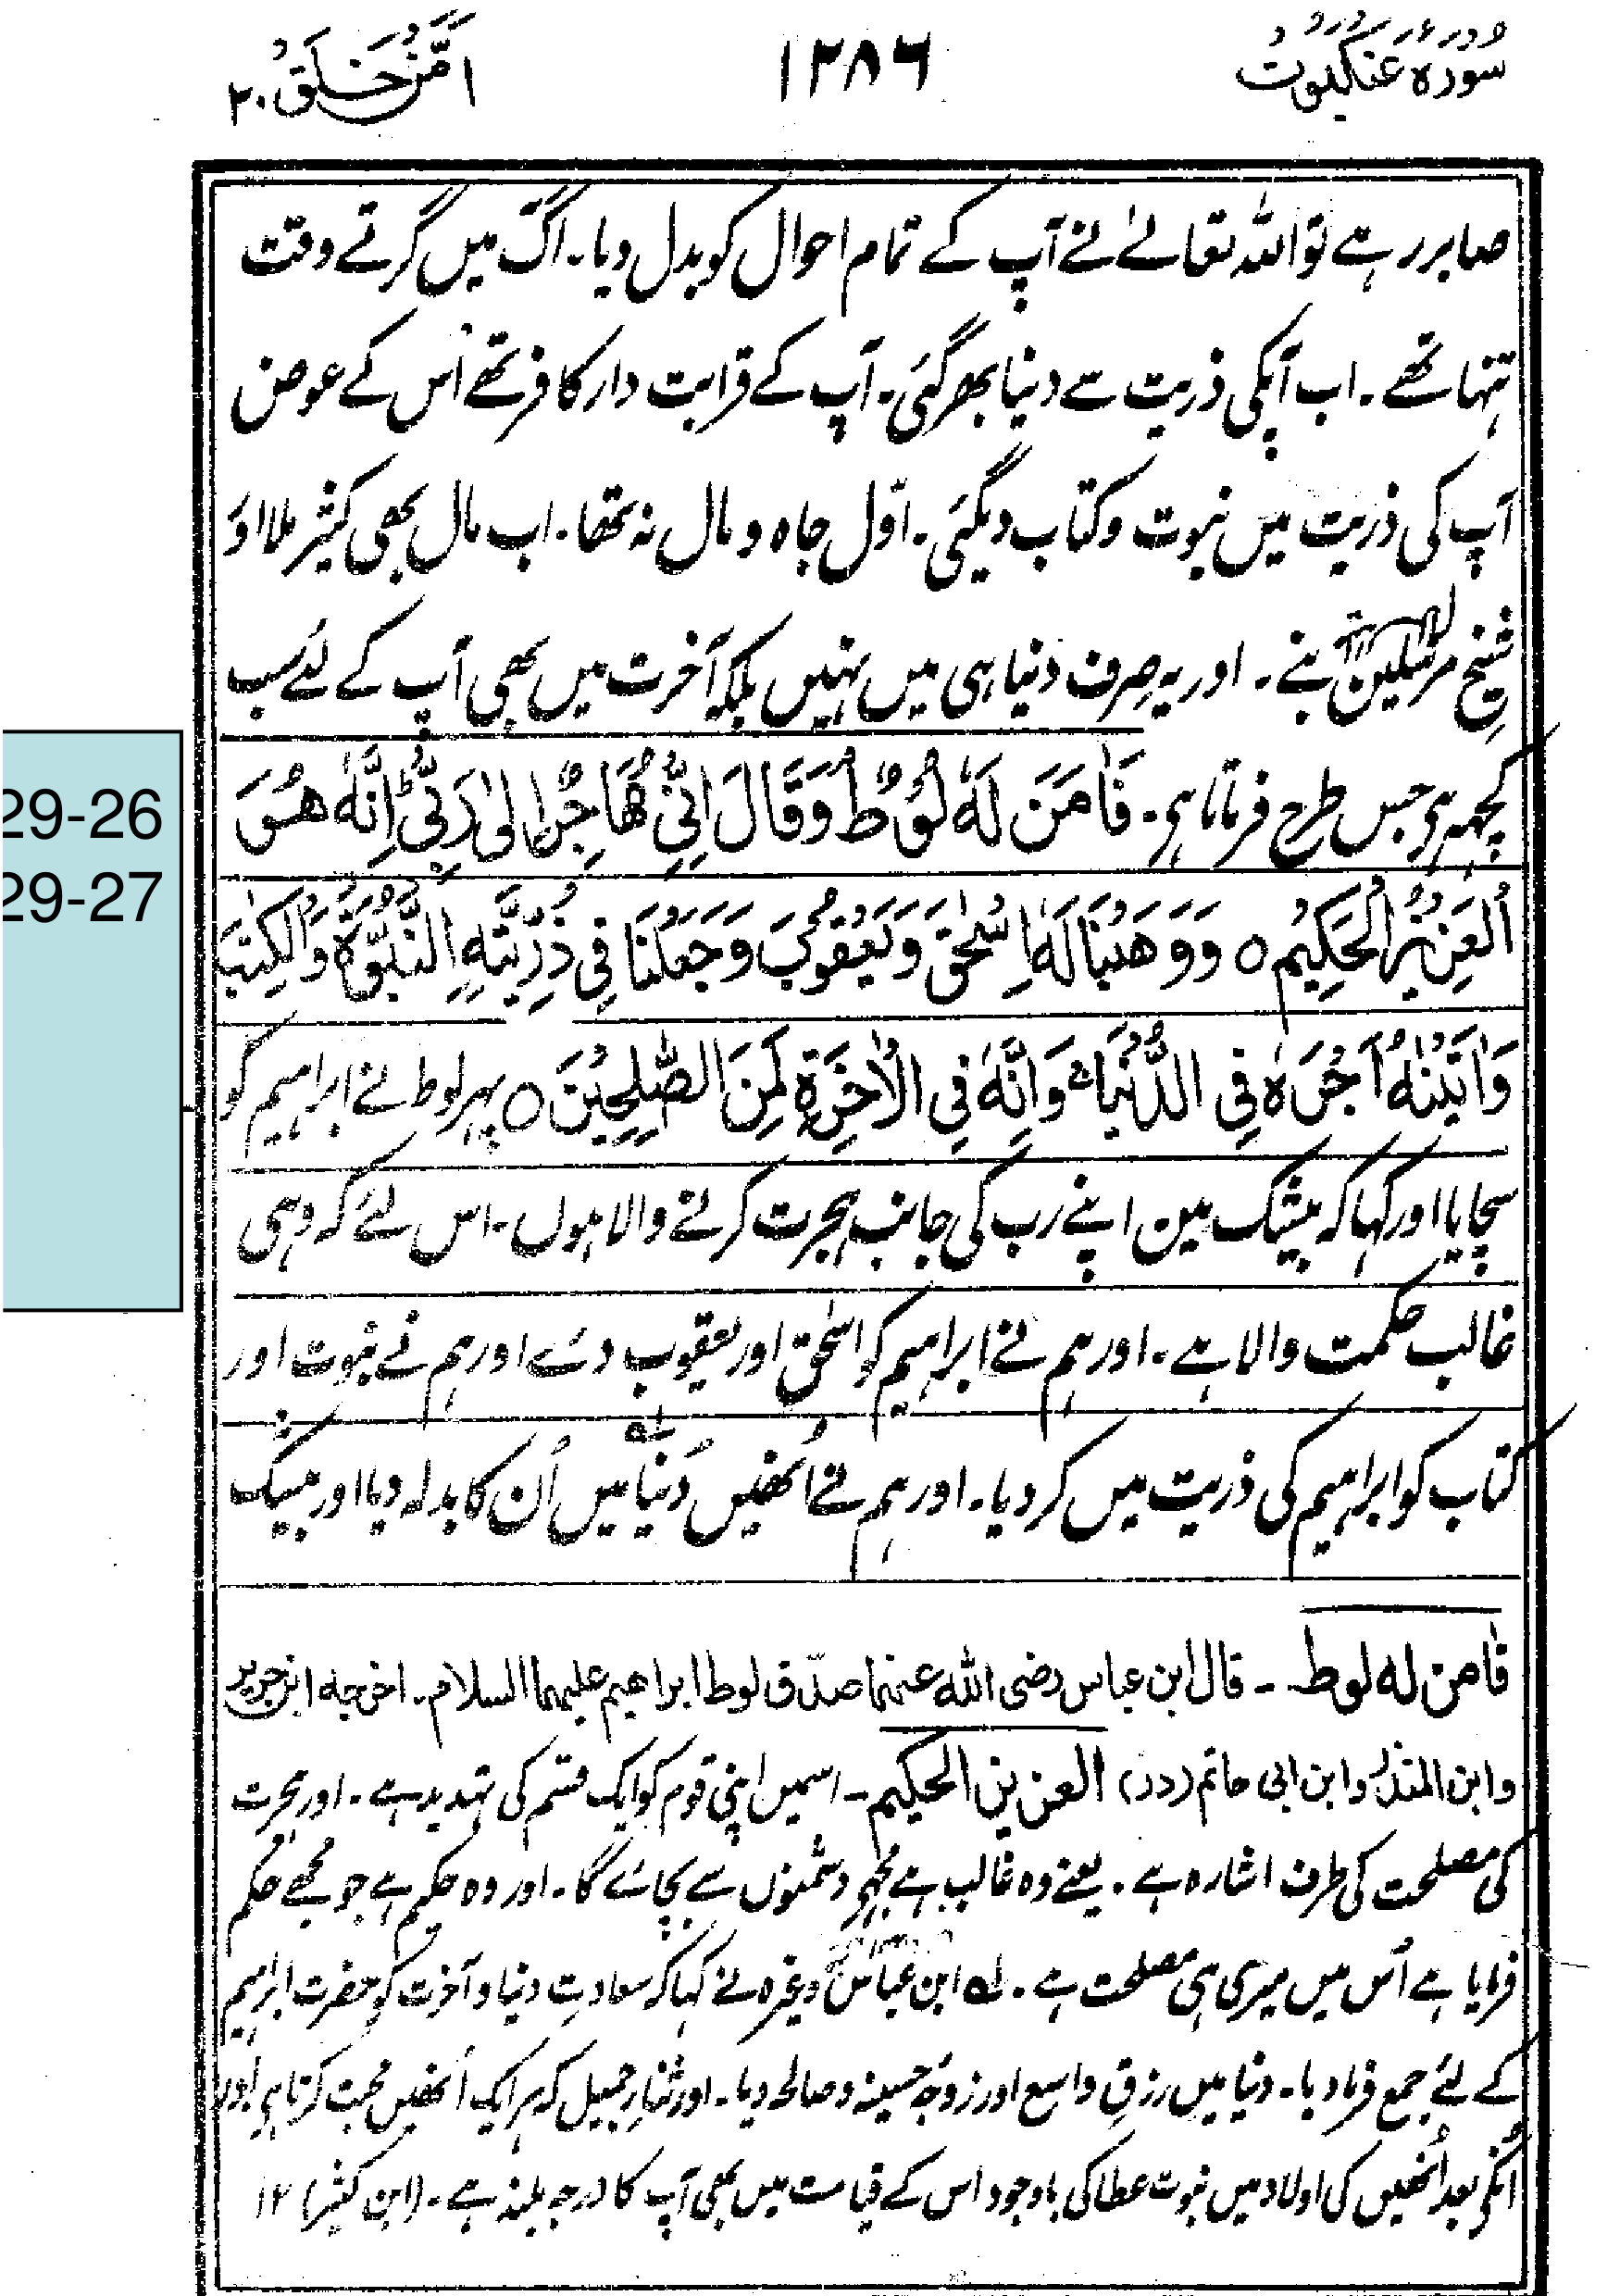 سُوْرَۂ عَنْکَبُوْت
۱۲۸۶
اَمَّنْ خَلَقَ ۲۰
صابر رہے تو اللہ تعالےٰ نے آپ کے تمام احوال کو بدل دیا۔ آگ میں گرتے وقت
تنہا تھے۔ اب آپکی ذریت سے دنیا بھر گئی۔ آپ کے قرابت دار کافر تھے اُس کے عوض
آپ کی ذریت میں نبوت و کتاب دیگئی۔ اوّل جاہ و مال نہ تھا۔ اب مال بھی کثیر ملا اوَ
شیخ مرسلین بنے۔ اور یہ صِرف دنیا ہی میں نہیں بلکہ آخرت میں بھی آپ کے لئے سب
کچھہ ہی جس طرح فرماتا ہی۔ فَاٰمَنَ لَهٗ لُوْطٌ وَقَالَ اِنِّیْ مُهَاجِرٌ اِلٰی رَبِّیْ اِنَّهٗ هُوَ
29-26
29-27
الْعَزِیْزُ الْحَکِیْمُ ○ وَوَهَبْنَا لَهٗ اِسْحٰقَ وَیَعْقُوْبَ وَجَعَلْنَا فِیْ ذُرِّیَّتِهِ النُّبُوَّةَ وَالْکِتٰبَ
وَاٰتَیْنٰهُ اَجْرَهٗ فِی الدُّنْیَا ۚ وَاِنَّهٗ فِی الْاٰخِرَةِ لَمِنَ الصّٰلِحِیْنَ ○ پہر لوط نے ابراہیم کو
سچا پایا اور کہا کہ بیشک مین اپنے رب کی جانب ہجرت کرنے والا ہوں۔ اس لئے کہ وہی
غالب حکمت والا ہے۔ اور ہم نے ابراہیم کو اسحٰق اور یعقوب دئے اور ہم نے نبوت اور
کتاب کو ابراہیم کی ذریت میں کر دیا۔ اور ہم نے اُنھیں دُنیا میں اُن کا بدلہ دیا اور بیشک
فاٰمن له لوط ـ قال ابن عباس رضی الله عنهما صدّق لوط ابراهیم علیهما السلام۔ اخرجه ابن جریر
وابن المنذر وابن ابی حاتم (در) العزیز الحکیم ـ اسمیں اپنی قوم کو ایک قسم کی تہدید ہے۔ اور ہجرت
کی مصلحت کی طرف اشارہ ہے۔ یعنے وہ غالب ہے مجھے دشمنوں سے بچائے گا۔ اور وہ حکیم ہے جو مجھے حکم
فرمایا ہے اُس میں میری ہی مصلحت ہے۔ لہ ابن عباس وغیرہ نے کہا کہ سعادتِ دنیا و آخرت کو حضرت ابراہیم
کے لئے جمع فرما دیا۔ دنیا میں رزقِ واسع اور زوجہ حسینہ و صالحہ دیا۔ اور ثنارِ جمیل کہ ہر ایک اُنھیں محبت کرتا ہی اور
اُنکے بعد اُنھیں کی اولاد میں نبوت عطا کی باوجود اس کے قیامت میں بھی آپ کا درجہ بلند ہے۔ (ابن کثیر) ۱۲